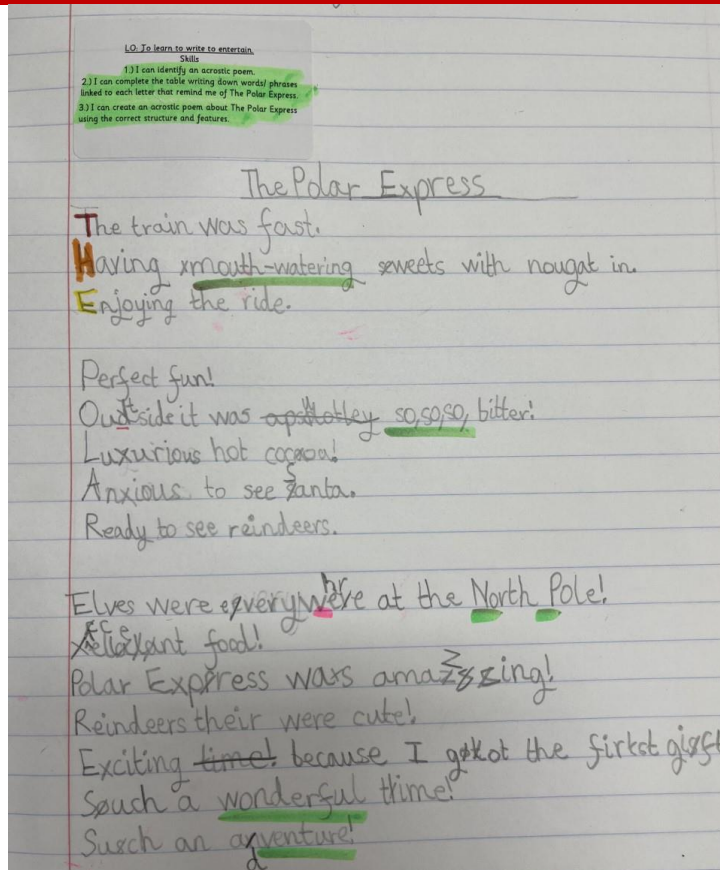 LO: To learn to write to entertain.
Skills
1.) I can identify an acrostic poem.
2.) I can complete the table writing down words/ phrases
linked to each letter that remind me of The Polar Express.
3.) I can create an acrostic poem about The Polar Express
using the correct structure and features.
The Polar Express
The train was fast.
Having mouth-watering sweets with nougat in.
Enjoying the ride.
Perfect fun!
Outside it was so,so,so, bitter!
Luxurious hot cocoa!
Anxious to see Santa.
Ready to see reindeers.
Elves were everywhere at the North Pole!
food!
Polar Express was amazzing!
Reindeers their were cute!
Exciting time! because I got the first gift
Such a wonderful time!
Such an adventure!